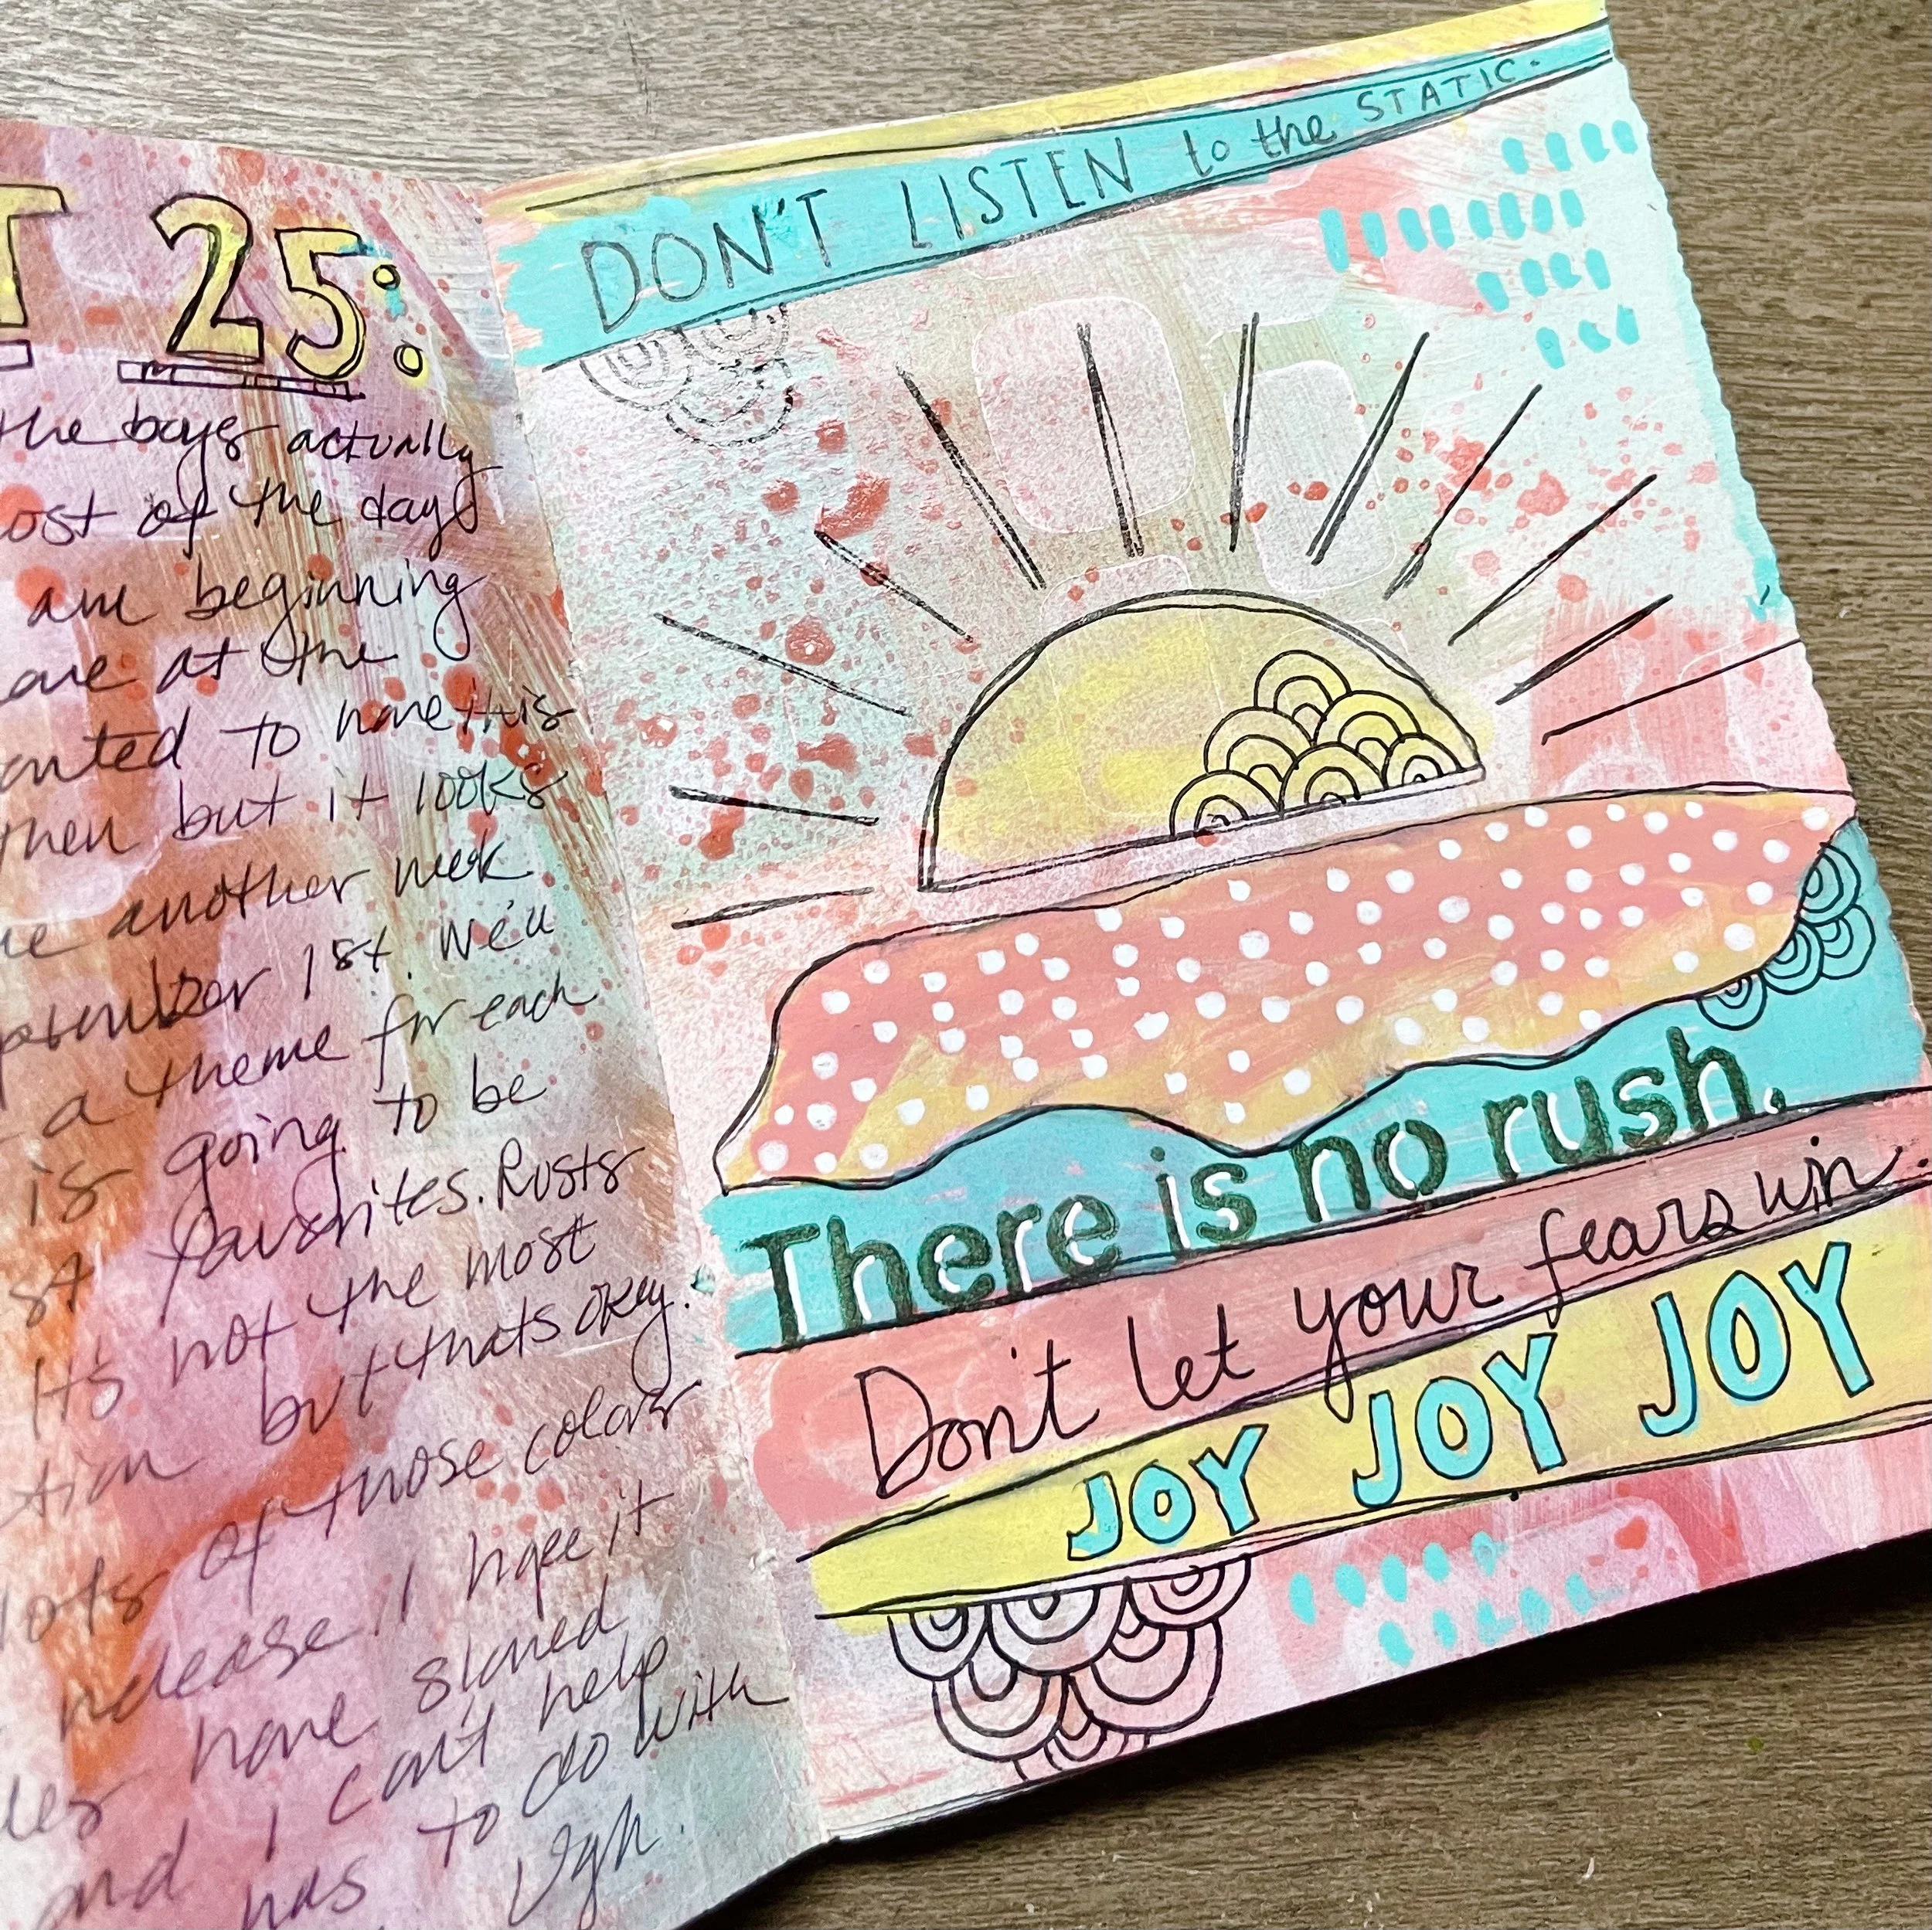 T 25:
the boys actually
ost of the day
am beginning
at the
anted to have this
then but it looks
another week
ptember 1st. We'll
a theme for each
is going to be
st favorites. Rusts
It's not the most
tion but thats okey.
lots of those colors
release, I hope it
have slowed
and I can't help
has to do with
Ugh.
DON'T LISTEN to the STATIC.
There is no rush.
Don't let your fears win.
JOY JOY JOY